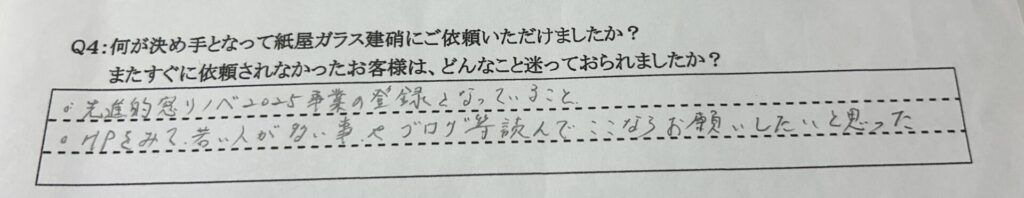 Q4:何が決め手となって紙屋ガラス建硝にご依頼いただけましたか？
またすぐに依頼されなかったお客様は、どんなこと迷っておられましたか？
○先進的窓リノベ2025事業の登録となっていること、
○HPをみて、若い人が多い事やブログ等読んでここならお願いしたいと思った